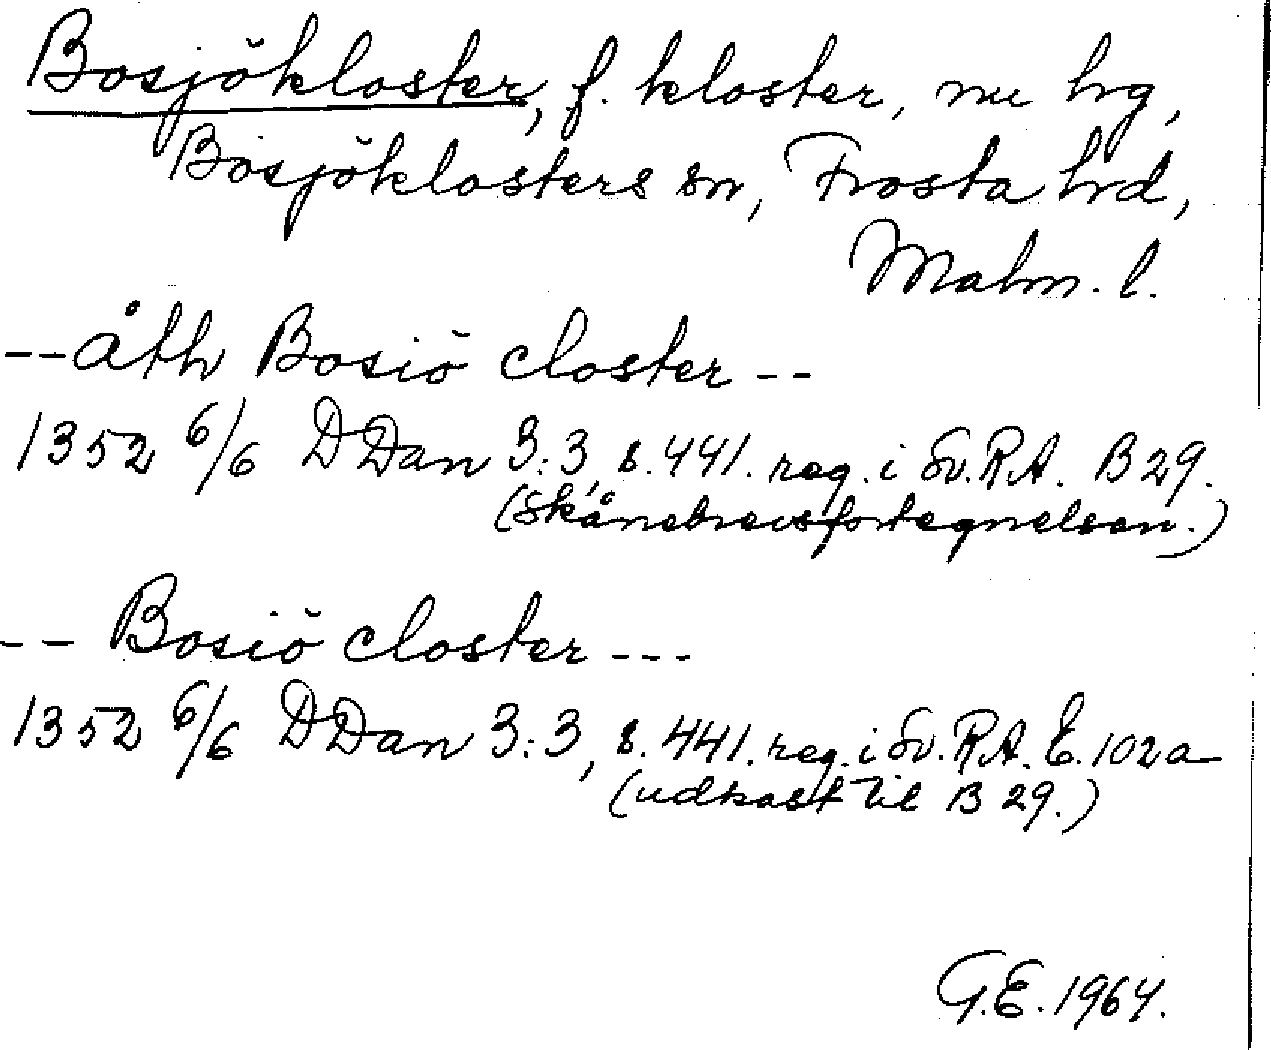 Bosjökloster, f. kloster, nu hrg,
Bosjöklosters sn, Frosta hrd,
Malm. l.
-- åth Bosiö closter --
1352 6/6 DDan 3:3, s. 441. reg. i Sv. RA. B 29.
(Skånebrevsfortegnelsen.)
-- Bosiö closter ---
1352 6/6 DDan 3:3, s. 441. reg. i Sv. RA. E. 102a
(udkast til B 29.)
G.E. 1964.